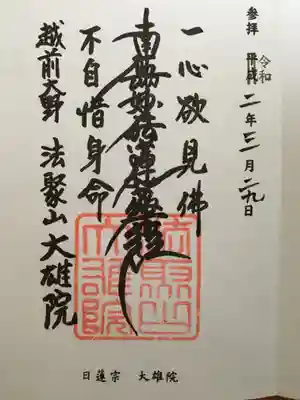 参拝 平成 令和 二年三月二九日
一心欲見佛
南無妙法蓮華経
不自惜身命
越前大野 法聚山大雄院
法聚山大雄院
日蓮宗 大雄院